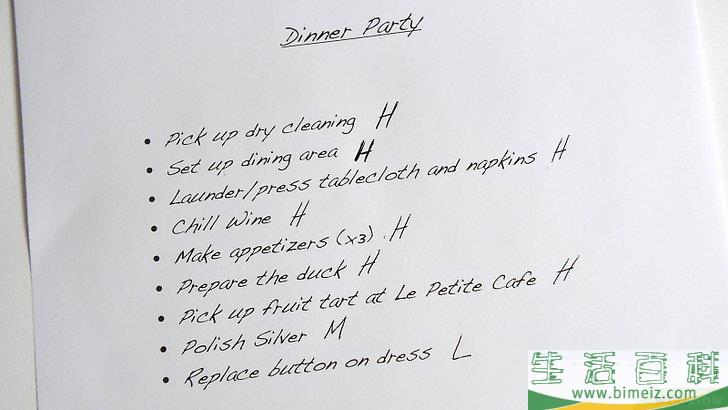 Dinner Party
• Pick up dry cleaning H
• Set up dining area H
• Launder/press tablecloth and napkins H
• Chill Wine H
• Make appetizers (x3) H
• Prepare the duck H
• Pick up fruit tart at Le Petite Cafe H
• Polish Silver M
• Replace button on dress L
生活百科
www.bimeiz.com